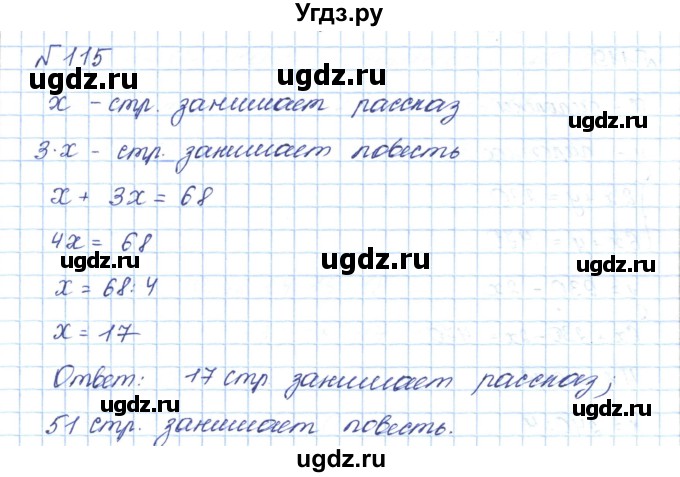 Угдз.ру
№115
x - стр. занимает рассказ
3·x - стр. занимает повесть
x + 3x = 68
4x = 68
x = 68:4
x = 17
Ответ: 17 стр занимает рассказ;
51 стр. занимает повесть.
ugdz.ru
ugdz.ru
ugdz.ru
ugdz.ru
ugdz.ru
ugdz.ru
ugdz.ru
ugdz.ru
ugdz.ru